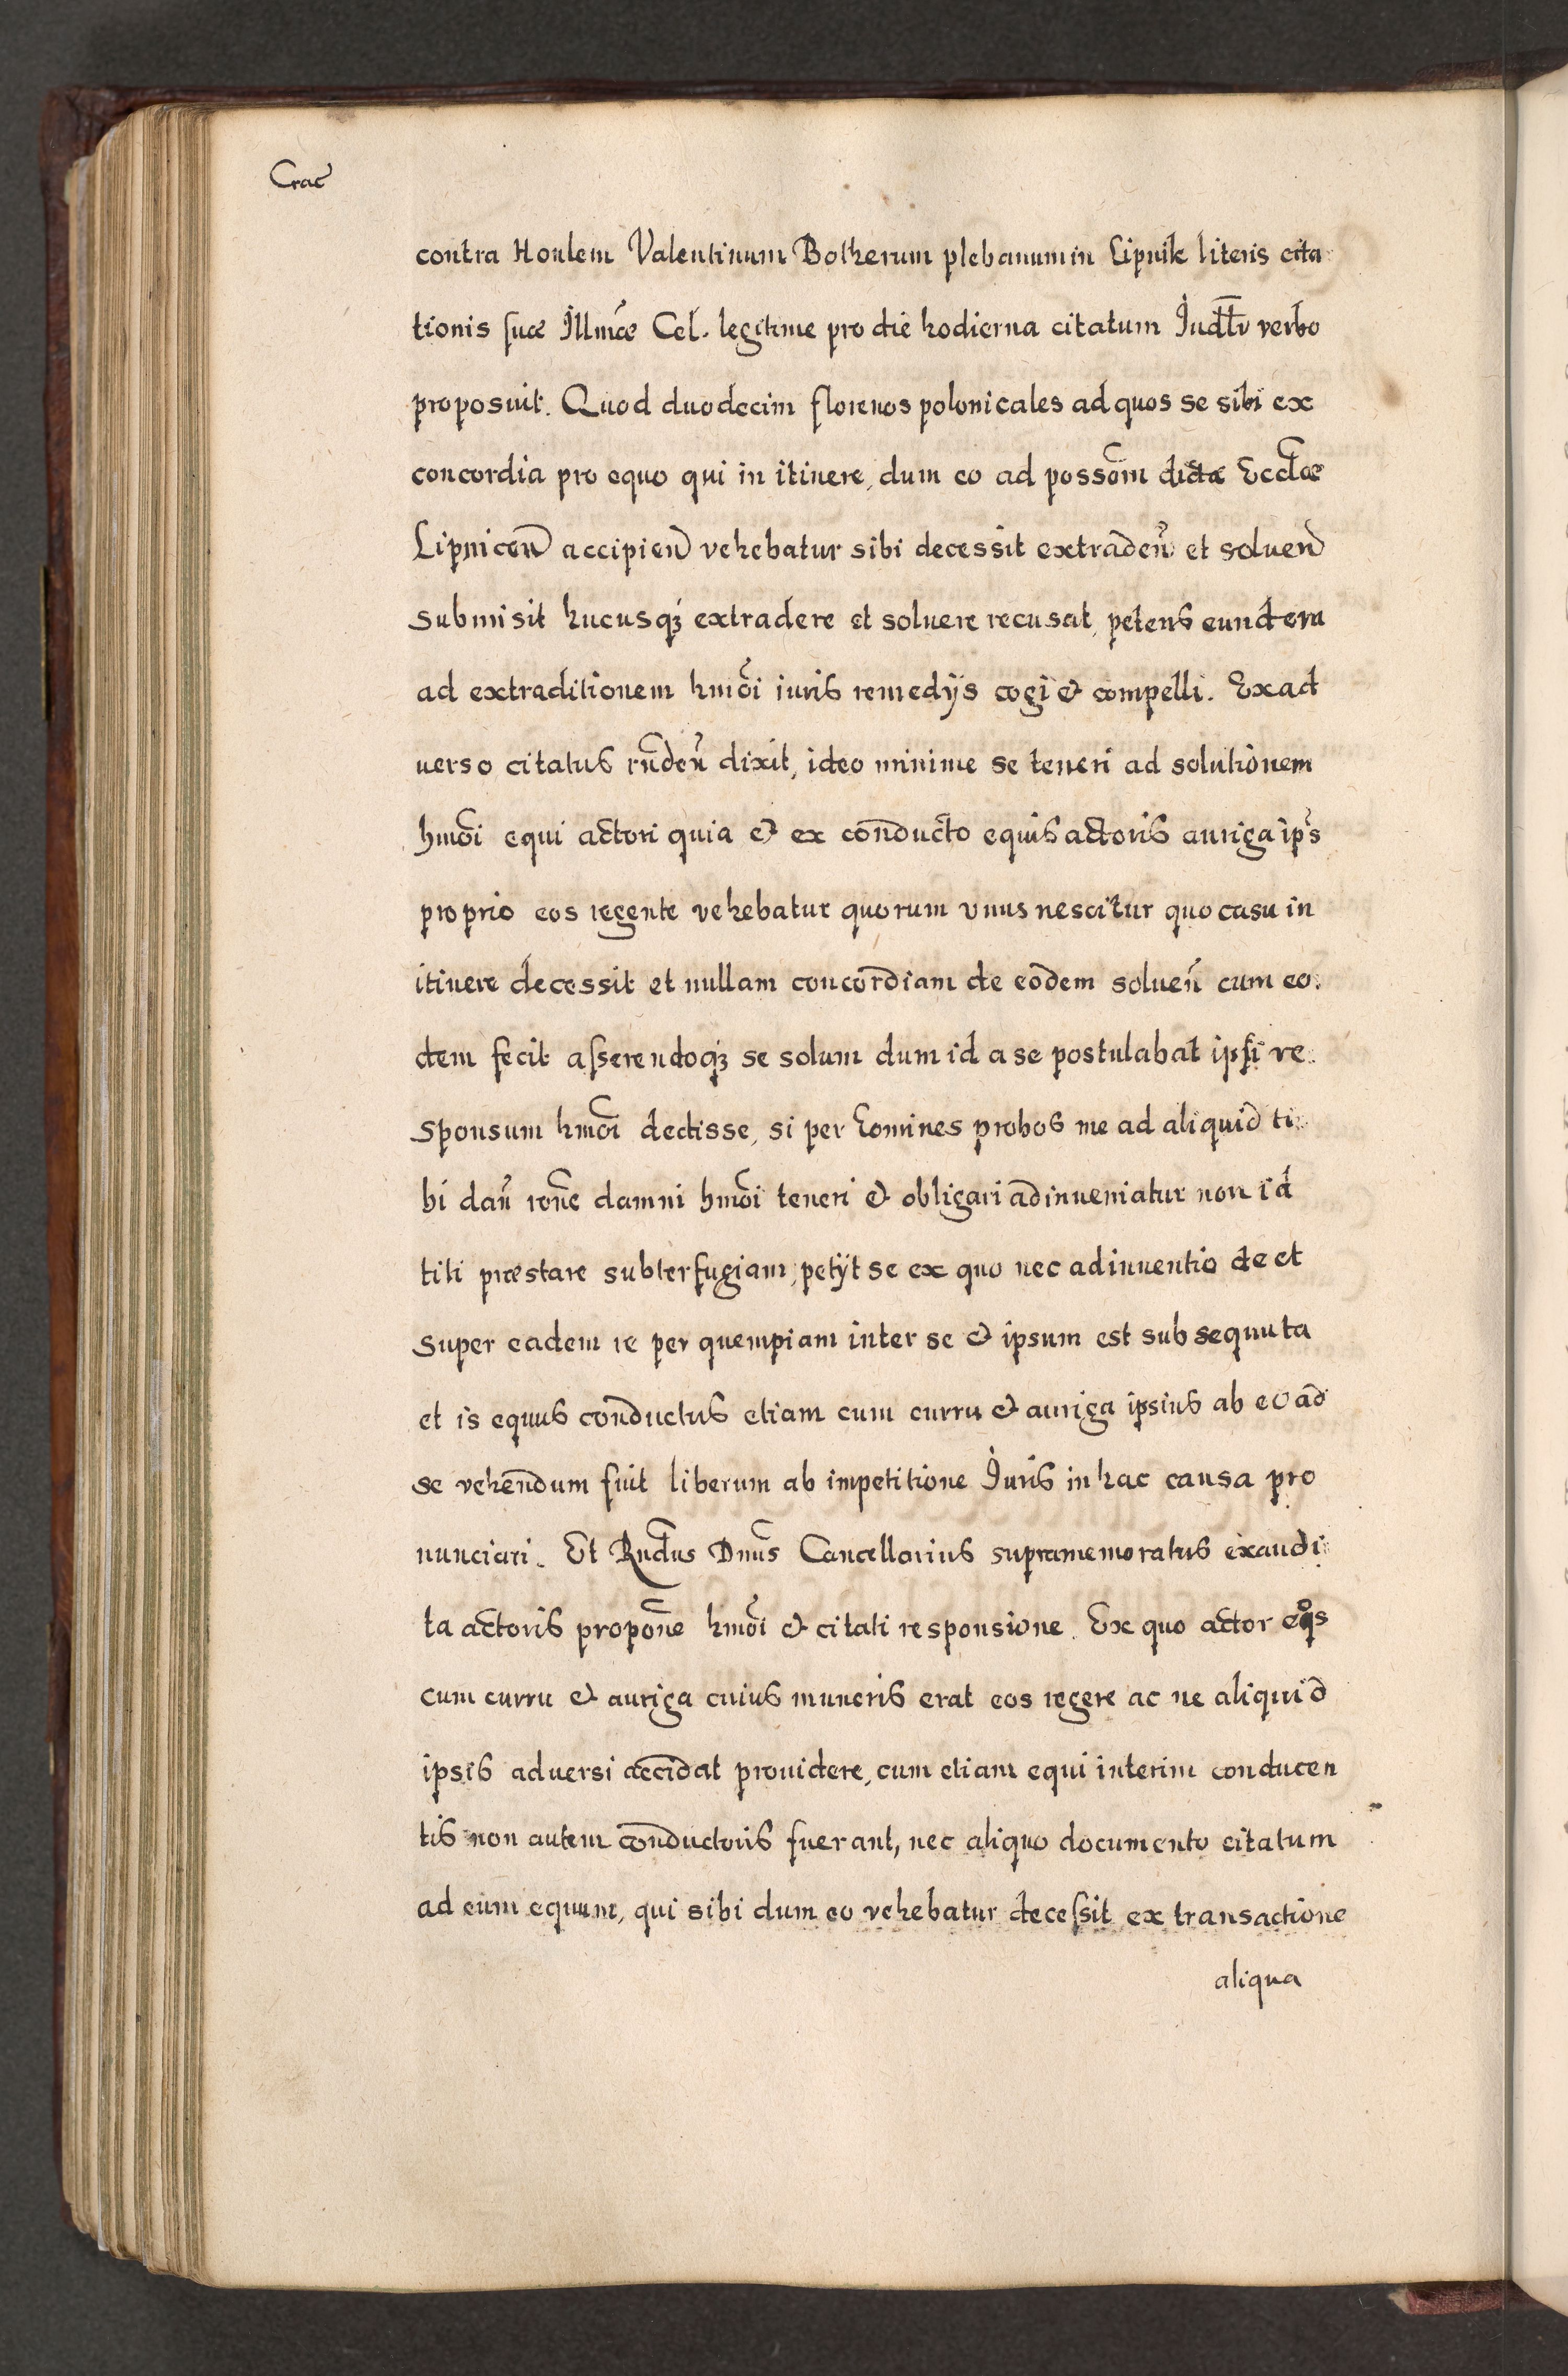 Crac̄
contra Honlem Valentinum Botherum plebanum in Lipnik literis cita
tionis suæ Illmæ Cel. legitime pro die hodierna citatum Iudtr verbo
proposuit. Quod duodecim florenos polonicales ad quos se sibi ex
concordia pro equo qui in itinere, dum eo ad possom̄ dictæ Eccl̄æ
Lipnicen̄ accipien̄ vehebatur sibi decessit extraden̄ et soluen̄
submisit hucusqȝ extradere et soluere recusat, petens eundem
ad extraditionem hmōi iuris remedijs cogi & compelli. Ex ad
uerso citatus rn̄den̄ dixit, ideo minime se teneri ad solutionem
hmōi equi actori quia & ex conducto equis actoris auriga ip̄s
proprio eos regente vehebatur quorum vnus nescitur quo casu in
itinere decessit et nullam concordiam de eodem soluen̄ cum eo:
dem fecit asserendoqȝ se solum dum id a se postulabat ipsi re:
sponsum hmōi dedisse, si per homines probos me ad aliquid ti:
bi dan̄ rōne damni hmōi teneri & obligari adinueniatur non id
tibi præstare subterfugiam, petijt se ex quo nec adinuentio de et
super eadem re per quempiam inter se & ipsum est subsequuta
et is equus conductus etiam cum curru & auriga ipsius ab eo ad
se vehendum fuit liberum ab impetitione Iuris in hac causa pro
nunciari. Et Rn̄dus Dn̄us Cancellarius supramemoratus exaudi:
ta actoris propōne hmōi & citati responsione. Ex quo actor eqͦs
cum curru & auriga cuius muneris erat eos regere ac ne aliquid
ipsis aduersi accidat prouidere, cum etiam equi interim conducen
tis non autem conductoris fuerant, nec aliquo documento citatum
ad eum equum, qui sibi dum eo vehebatur decessit ex transactione
aliqua